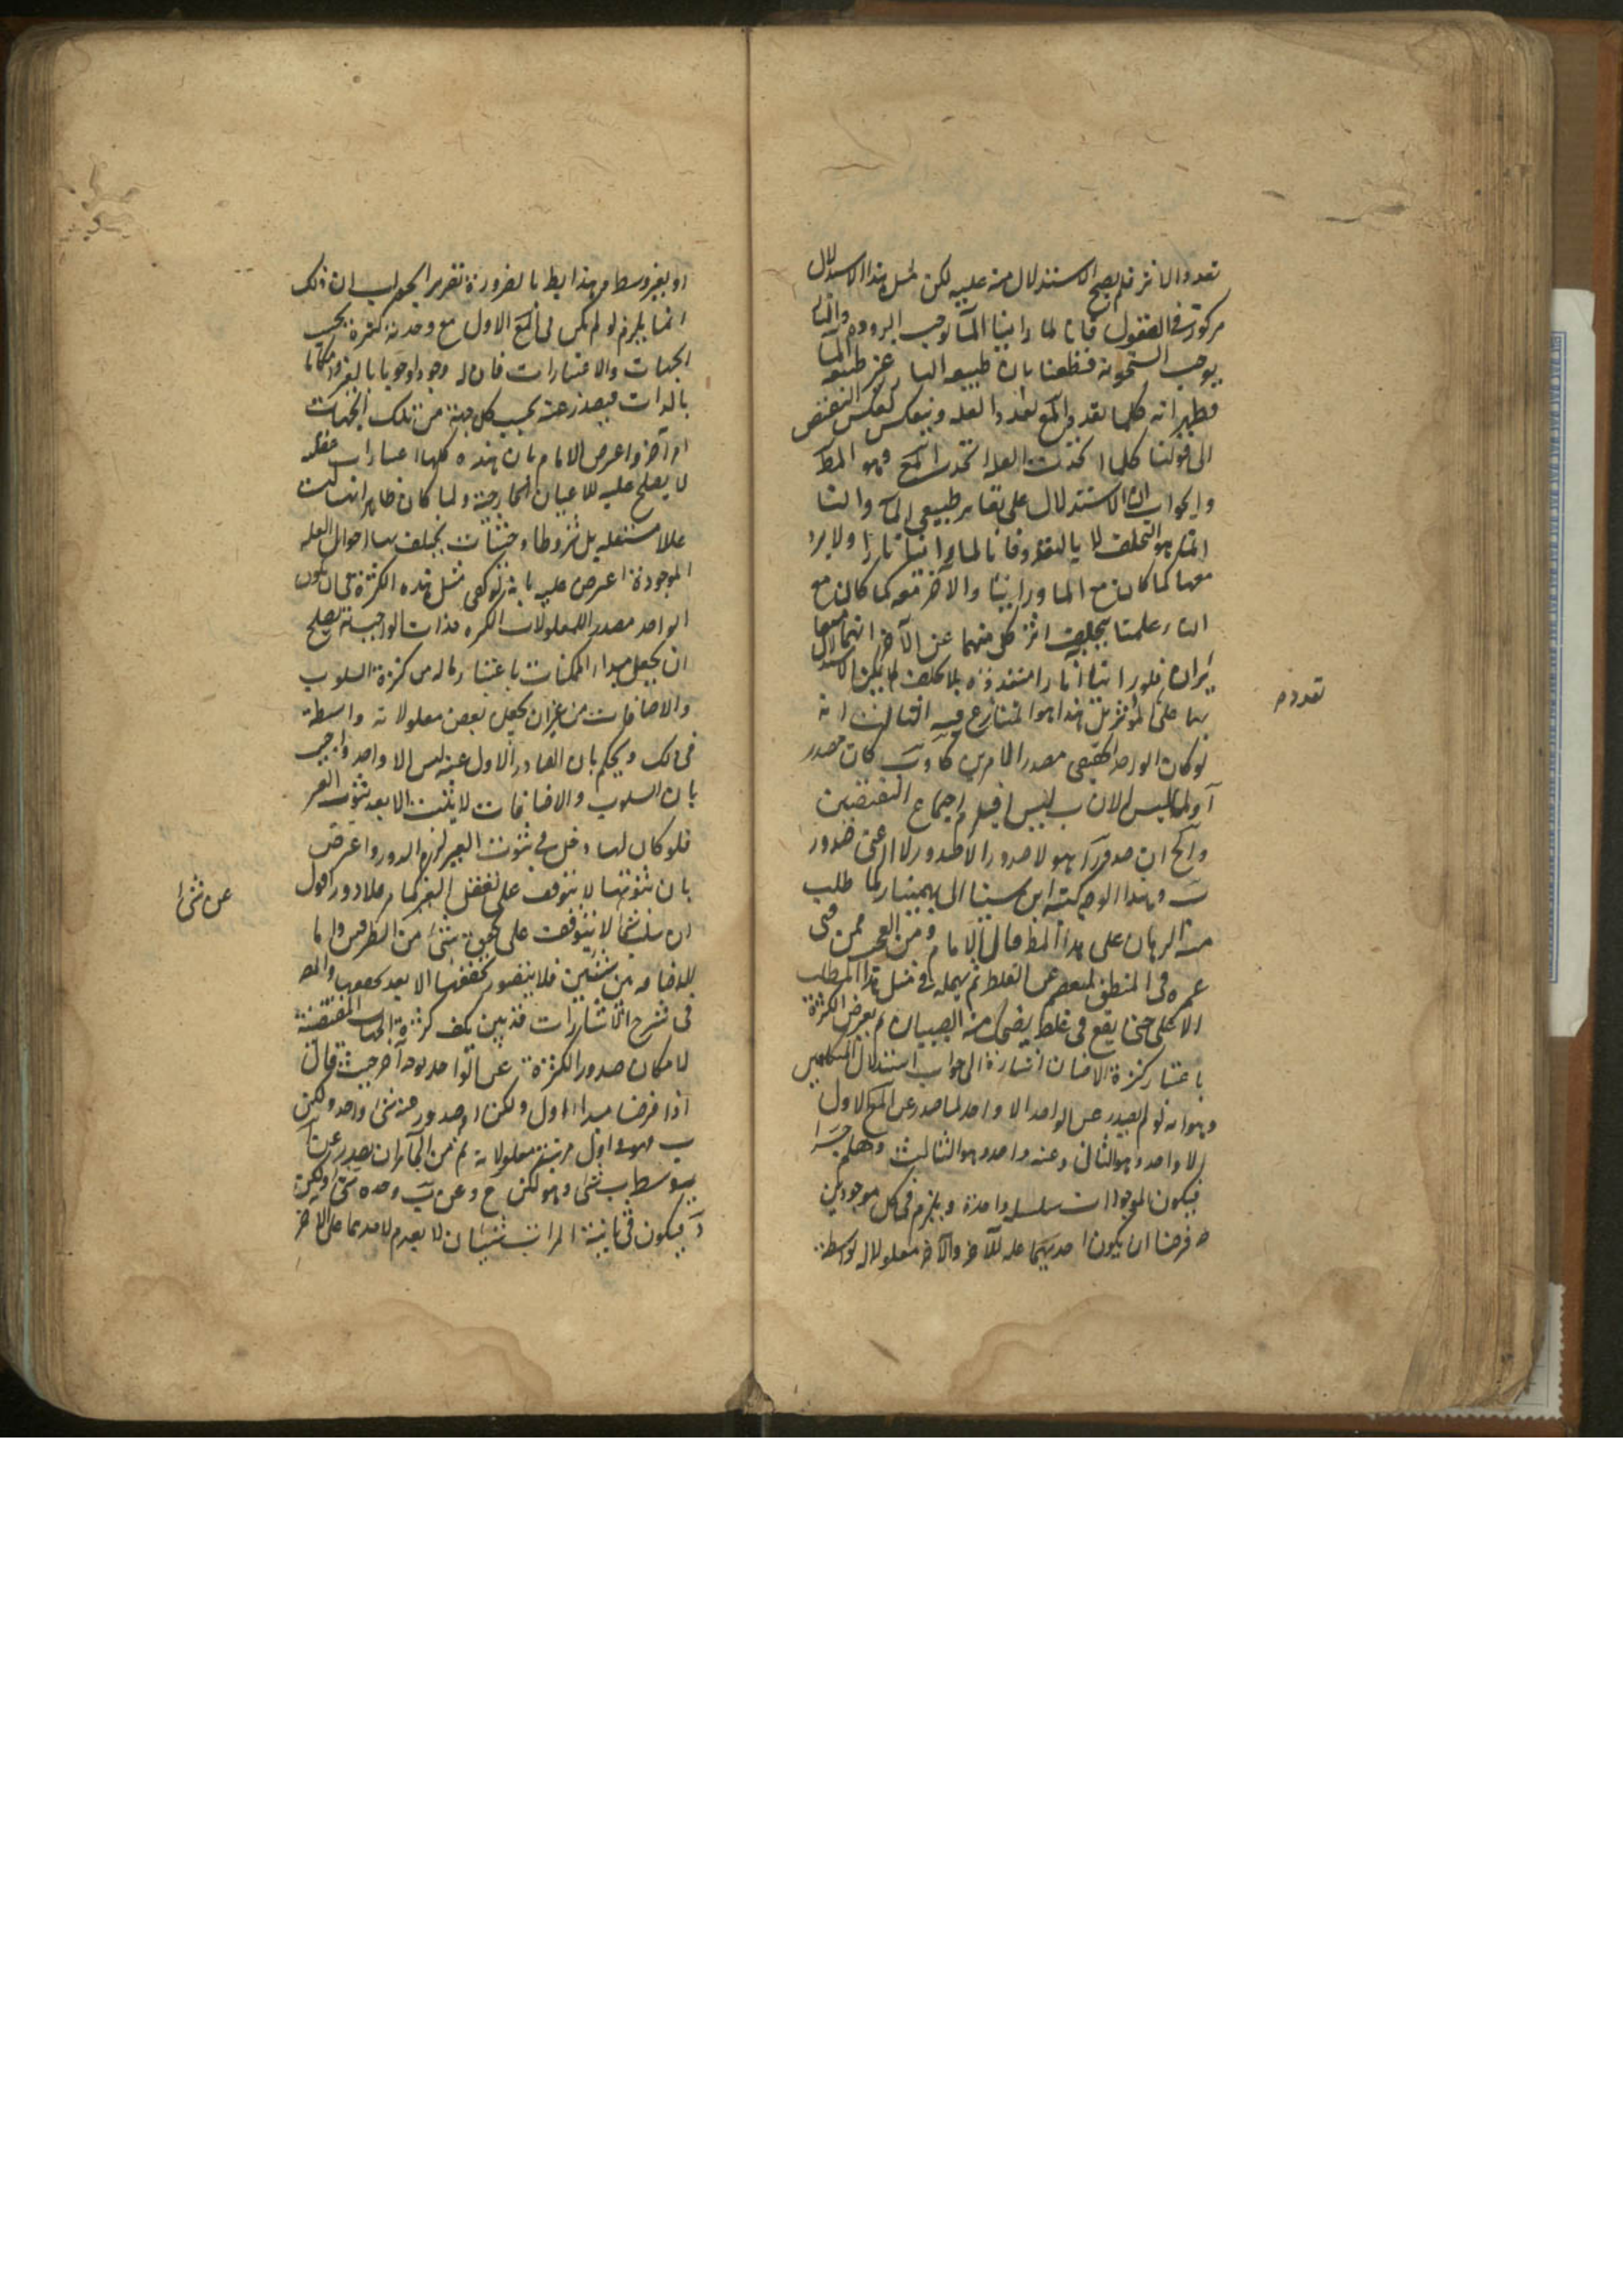 تعدد الاثر فلم يصح الاستدلال منه عليه لكن مثل هذا الاستدلال
مركوز في العقول فانا لما راينا الماء يوجب البرودة والنار
يوجب السخونة قطعنا بان طبيعة النار غير طبيعة الماء
فظهر انه كلما تعدد المع تعدد العله وينعكس بعكس النقيض
الى قولنا كلما اتحدت العله اتحد المع وهو المط
والجواب ان الاستدلال على تغاير طبيعتي الماء والنار
انما هو بالتخلف لا بالتعدد فانا لما راينا نارا ولا برد
معها كما كان مع الماء وراينا ماء والآخر معه كما كان مع
النار علمنا بتخلف اثر كل منهما عن الآخر انهما متغايران
فلو راينا آثارا متعددة بلا تخلف لم يكن الاستدلال
بها على المؤثر بل هذا هو المتنازع فيه الثالث انه
لو كان الواحد الحقيقي مصدرا لامرين كآ وب كان مصدر
آ ولما ليس آ لان ب ليس آ فيلزم اجتماع النقيضين
والجواب ان نقيض صدور آ هو لا صدور آ لا صدور لا آ اعني صدور
ب وهذا الوجه كتبه ابن سينا الى بهمنيار لما طلب
منه البرهان على هذا المط قال الامام ومن العجب ممن يفني
عمره في المنطق ليعصمه عن الغلط ثم يهمله في مثل هذا المطلب
الاعلى حتى يقع في غلط يضحك منه الصبيان ثم بعرض الكثرة
باعتبار كثرة الاضافات اشارة الى جواب استدلال المتكلمين
وهو انه لو لم يصدر عن الواحد الا واحد لما صدر عن المع الاول
الا واحد وهو الثاني وعنه واحد وهو الثالث وهلم جرا
فيكون الموجودات سلسلة واحدة ويلزم في كل موجودين
فرضنا ان يكون احديهما علة للآخر والآخر معلولا له بواسطة
تعدده
او بغير وسط وهذا بط بالضرورة تقرير الجواب ان ذلك
انما يلزم لو لم يكن في المع الاول مع وحدته كثرة بحسب
الجهات والاعتبارات فان له وجودا ووجوبا بالغير وامكانا
بالذات فيصدر عنه بحسب كل جهة من تلك الجهات
امر آخر واعترض الامام بان هذه كلها اعتبارات عقلية
لا يصلح علية للاعيان الخارجية ولما كان ظاهرا انها ليست
عللا مستقلة بل شروطا وحيثيات يختلف بها احوال العلة
الموجودة اعترض عليه بانه لو كفى مثل هذه الكثرة في ان يكون
الواحد مصدرا للمعلولات الكثيرة فذات الواجب تعالى يصلح
ان يجعل مبدا للممكنات باعتبار ما له من كثرة السلوب
والاضافات من غير ان يجعل بعض معلولاته واسطة
في ذلك ويحكم بان الصادر الاول عنه ليس الا واحد واجيب
بان السلوب والاضافات لا يثبت الا بعد ثبوت الغير
فلو كان لها دخل في ثبوت الغير لزم الدور واعترض
بان ثبوتها لا يتوقف على تعقل الغير فلا دور اقول
ان سلب شيء لا يتوقف على تحقق شيء من الطرفين واما
الاضافة بين شيئين فلا يتصور تحققها الا بعد تحققهما والمص
في شرح الاشارات قد بين كيف كثرة الجهات المقتضية
لامكان صدور الكثرة عن الواحد بوجه آخر حيث قال
اذا فرضنا مبدا اول وليكن آ وصدر عنه شيء واحد وليكن
ب فهو في اول مرتبة معلولاته ثم من الجائز ان يصدر عن آ
بتوسط ب شيء وهو ليكن ج وعن ب وحده شيء وليكن
د فيكون في ثانية المراتب شيئان لا يقدم لاحدهما على الآخر
عن شيء